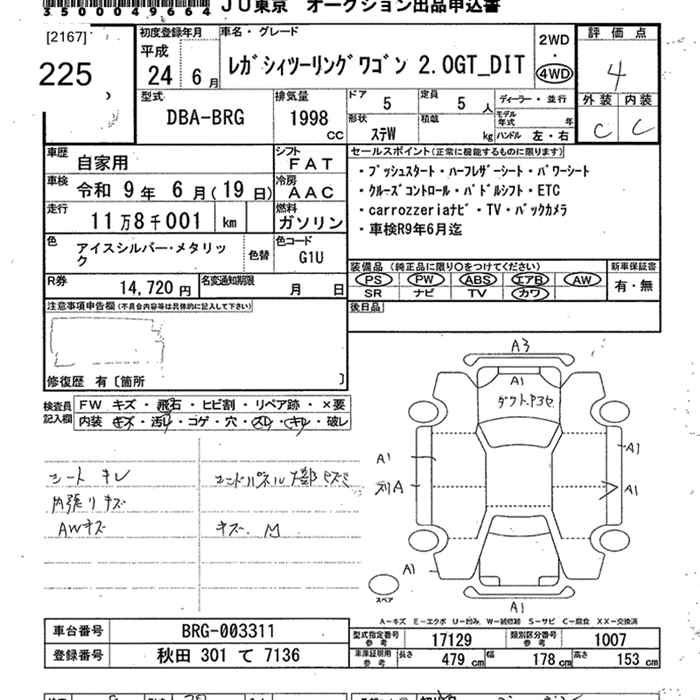 3500049664 JU東京 オークション出品申込書
[2167]
225
初度登録年月
平成
24 6月
車名・グレード
ﾚｶﾞｼｨﾂｰﾘﾝｸﾞﾜｺﾞﾝ 2.0GT_DIT
2WD
・
4WD
評価点
4
外装 内装
C C
型式
DBA-BRG
排気量
1998
CC
ドア 5
定員 5 人
ディーラー・並行
形状 ｽﾃW
積載 kg
モデル年式 年
ハンドル 左・右
車歴 自家用
シフト FAT
車検 令和 9年 6月(19日)
冷房 AAC
走行 11万8千001 km
燃料 ガソリン
色 アイスシルバー・メタリック
色替
色コード G1U
R券 14,720 円
名変通知期限 月 日
セールスポイント(正常に機能するものに限ります)
・ﾌﾟｯｼｭｽﾀｰﾄ・ﾊｰﾌﾚｻﾞｰｼｰﾄ・ﾊﾟﾜｰｼｰﾄ
・ｸﾙｰｽﾞｺﾝﾄﾛｰﾙ・ﾊﾟﾄﾞﾙｼﾌﾄ・ETC
・carrozzeriaﾅﾋﾞ・TV・ﾊﾞｯｸｶﾒﾗ
・車検R9年6月迄
装備品 (純正品に限り○をつけてください)
PS PW ABS エアB AW
SR ナビ TV カワ
新車保証書
有・無
後日品
注意事項申告欄(不具合内容等は具体的に記入して下さい)
修復歴 有〔箇所 〕
検査員記入欄
FW キズ・飛石・ヒビ割・リペア跡・×要
内装 キズ・汚れ・コゲ・穴・スレ・キレ・破レ
シート キレ
内張りキズ
AWキズ
キズ M
A3
A1
A1
A1
A1
A1
A1
A1
スペア
A－キズ E－エクボ U－凹み W－補修跡 S－サビ C－腐食 XX－交換済
車台番号 BRG-003311
登録番号 秋田 301 て 7136
型式指定番号 参考 17129
類別区分番号 参考 1007
車庫証明用 参考 長さ 479 cm 幅 178 cm 高さ 153 cm